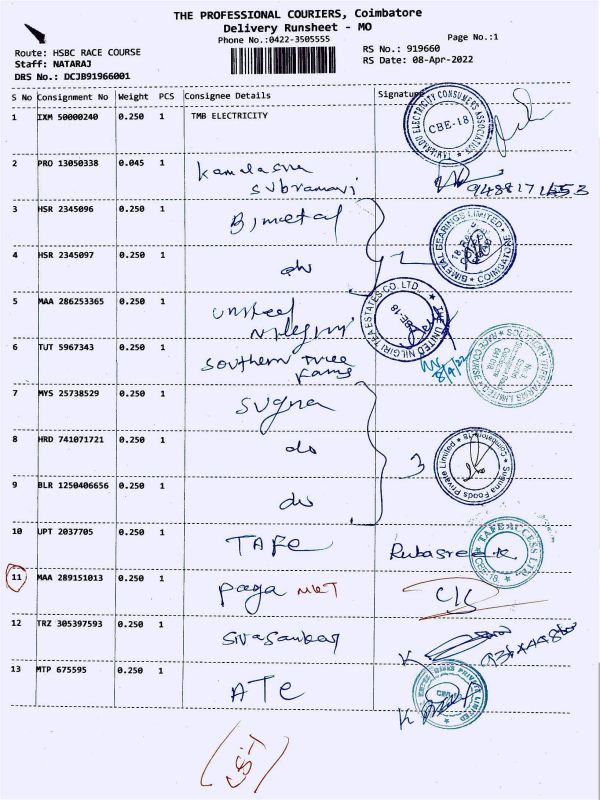 THE PROFESSIONAL COURIERS, Coimbatore
Delivery Runsheet - MO
Phone No.:0422-3505555
Page No.:1
Route: HSBC RACE COURSE
RS No.: 919660
Staff: NATARAJ
RS Date: 08-Apr-2022
DRS No.: DCJB91966001
S No Consignment No Weight PCS Consignee Details Signature
1 IXM 50000240 0.250 1 TMB ELECTRICITY
TAMILNADU ELECTRICITY CONSUMERS ASSOCIATION
CBE-18
2 PRO 13050338 0.045 1 Kamalasna
subramani
3 HSR 2345096 0.250 1 Bimetal
4 HSR 2345097 0.250 1 do
2
BIMETAL BEARINGS LIMITED
COIMBATORE
5 MAA 286253365 0.250 1 United
Nilegiri
THE UNITED NILGIRI TEA ESTATES CO. LTD.
CBE-18
6 TUT 5967343 0.250 1 Southern Tree
Fams
8/4/22
7 MYS 25738529 0.250 1 Suguna
8 HRD 741071721 0.250 1 do
3
Suguna Foods Private Limited
Coimbatore-18
9 BLR 1250406656 0.250 1 do
10 UPT 2037705 0.250 1 TAFE
TAFE ACCESS LTD.
CBE-18
11 MAA 289151013 0.250 1 paga MKT
C/S
12 TRZ 305397593 0.250 1 Sivasankar
13 MTP 675595 0.250 1 ATE
PRIVATE LIMITED